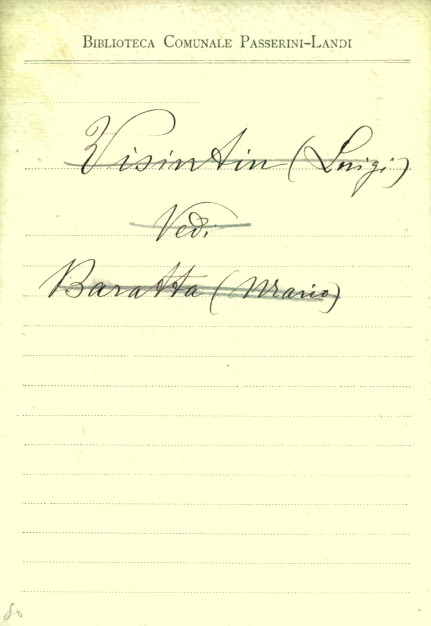 BIBLIOTECA COMUNALE PASSERINI-LANDI
Visintin (Luigi)
Vedi
Baratta (Mario)